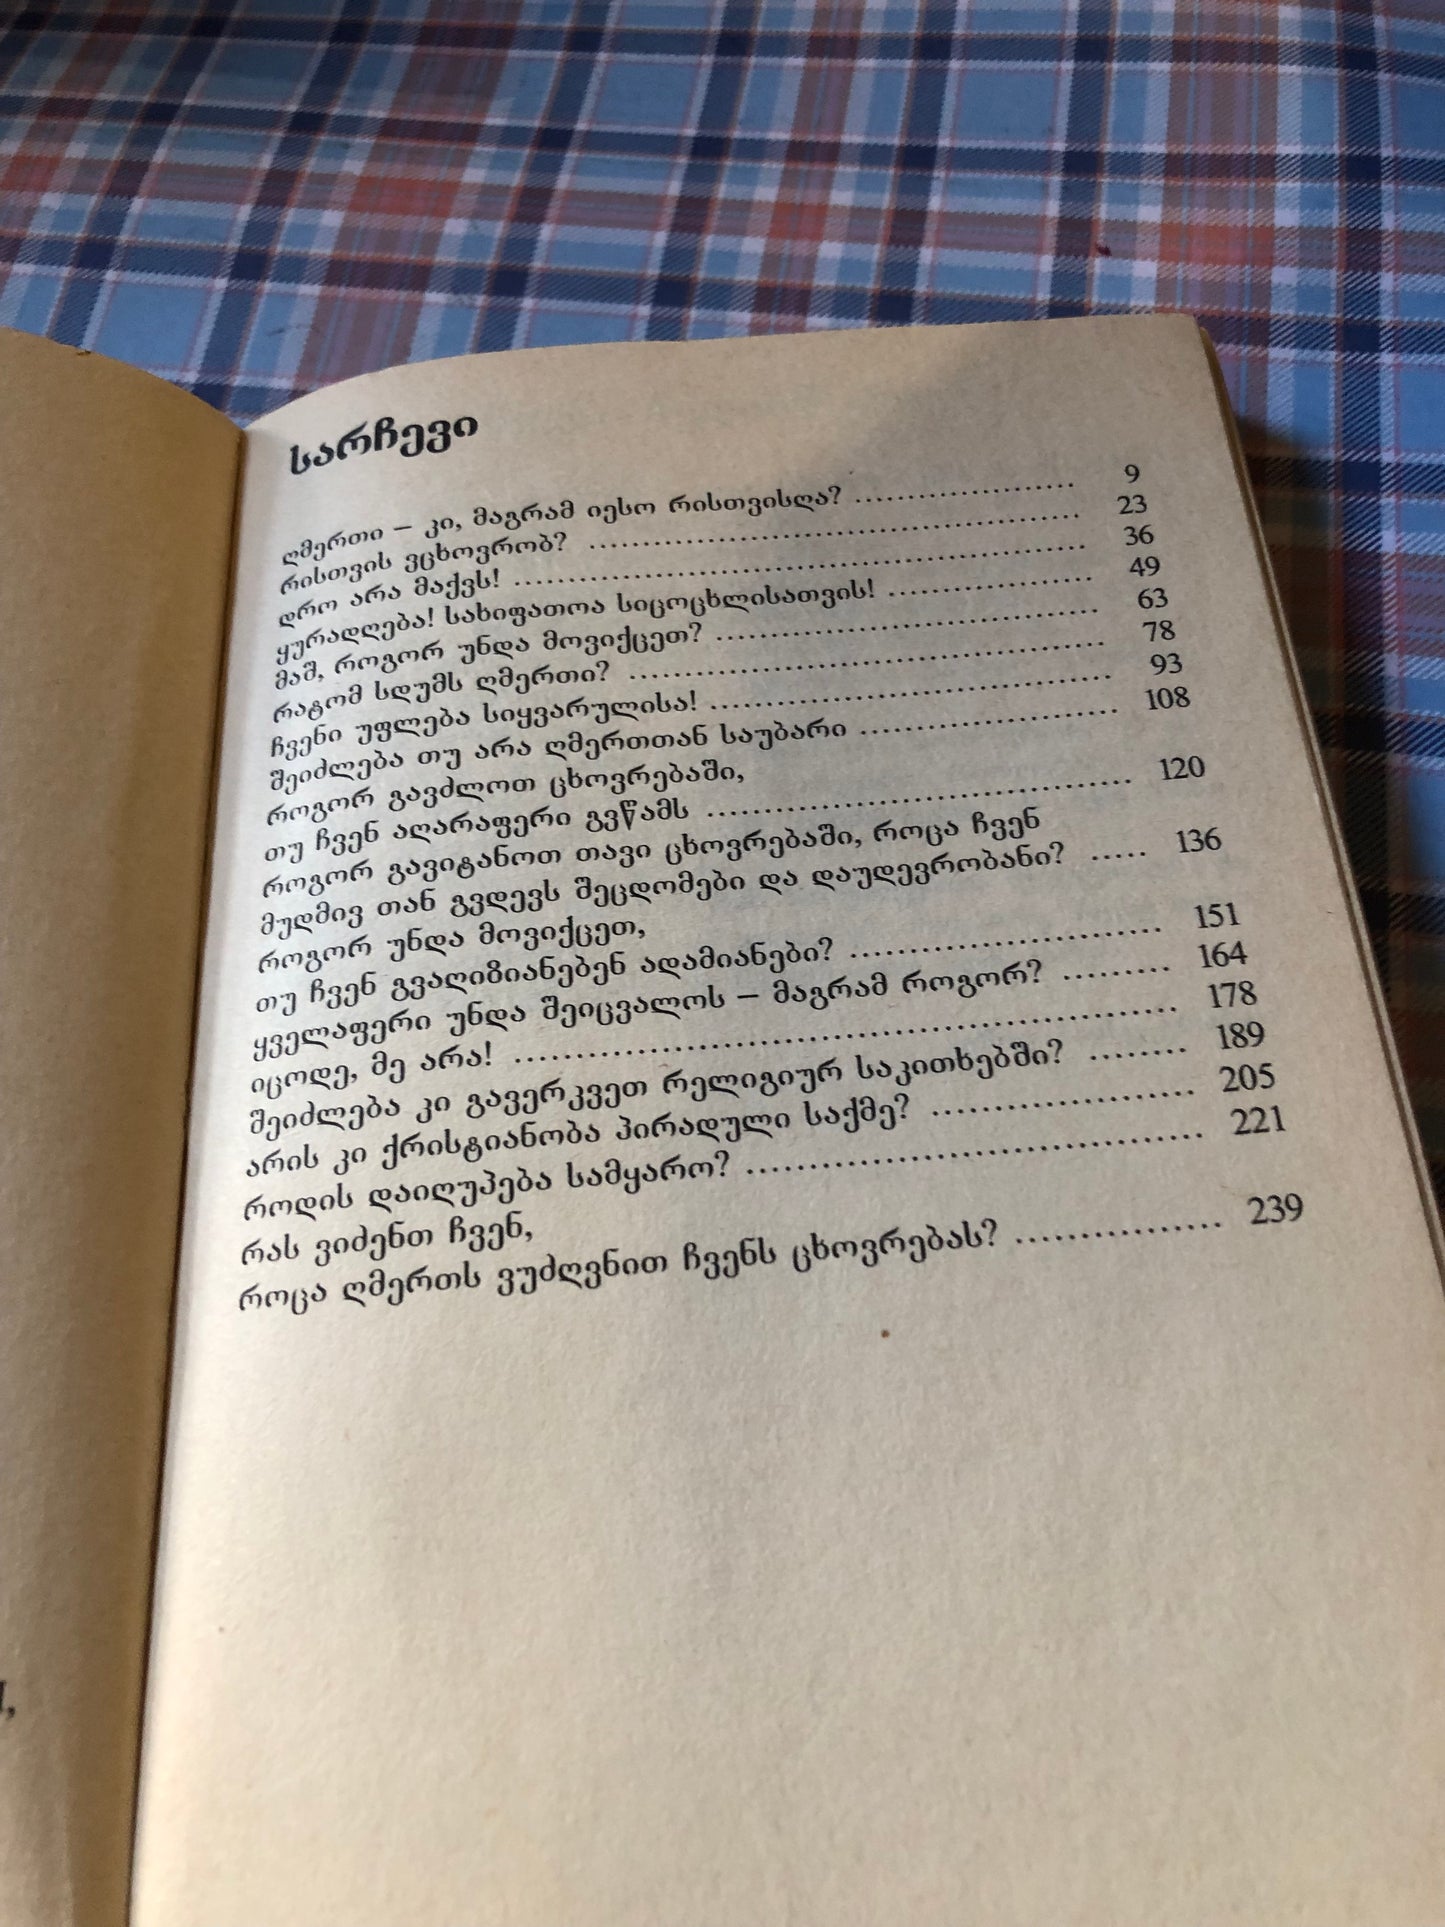 სარჩევი
ღმერთი – კი, მაგრამ იესო რისთვისღა? ...................... 9
რისთვის ვცხოვრობ? .................................................. 23
დრო არა მაქვს! .......................................................... 36
ყურადღება! სახიფათოა სიცოცხლისათვის! .................... 49
მაშ, როგორ უნდა მოვიქცეთ? ...................................... 63
რატომ სდუმს ღმერთი? .............................................. 78
ჩვენი უფლება სიყვარულისა! ...................................... 93
შეიძლება თუ არა ღმერთთან საუბარი ......................... 108
როგორ გავძლოთ ცხოვრებაში,
თუ ჩვენ აღარაფერი გვწამს ........................................ 120
როგორ გავიტანოთ თავი ცხოვრებაში, როცა ჩვენ
მუდმივ თან გვდევს შეცდომები და დაუდევრობანი? ..... 136
როგორ უნდა მოვიქცეთ,
თუ ჩვენ გვაღიზიანებენ ადამიანები? ........................... 151
ყველაფერი უნდა შეიცვალოს – მაგრამ როგორ? ......... 164
იცოდე, მე არა! .......................................................... 178
შეიძლება კი გავერკვეთ რელიგიურ საკითხებში? ........ 189
არის კი ქრისტიანობა პირადული საქმე? ..................... 205
როდის დაიღუპება სამყარო? ...................................... 221
რას ვიძენთ ჩვენ,
როცა ღმერთს ვუძღვნით ჩვენს ცხოვრებას? ................ 239